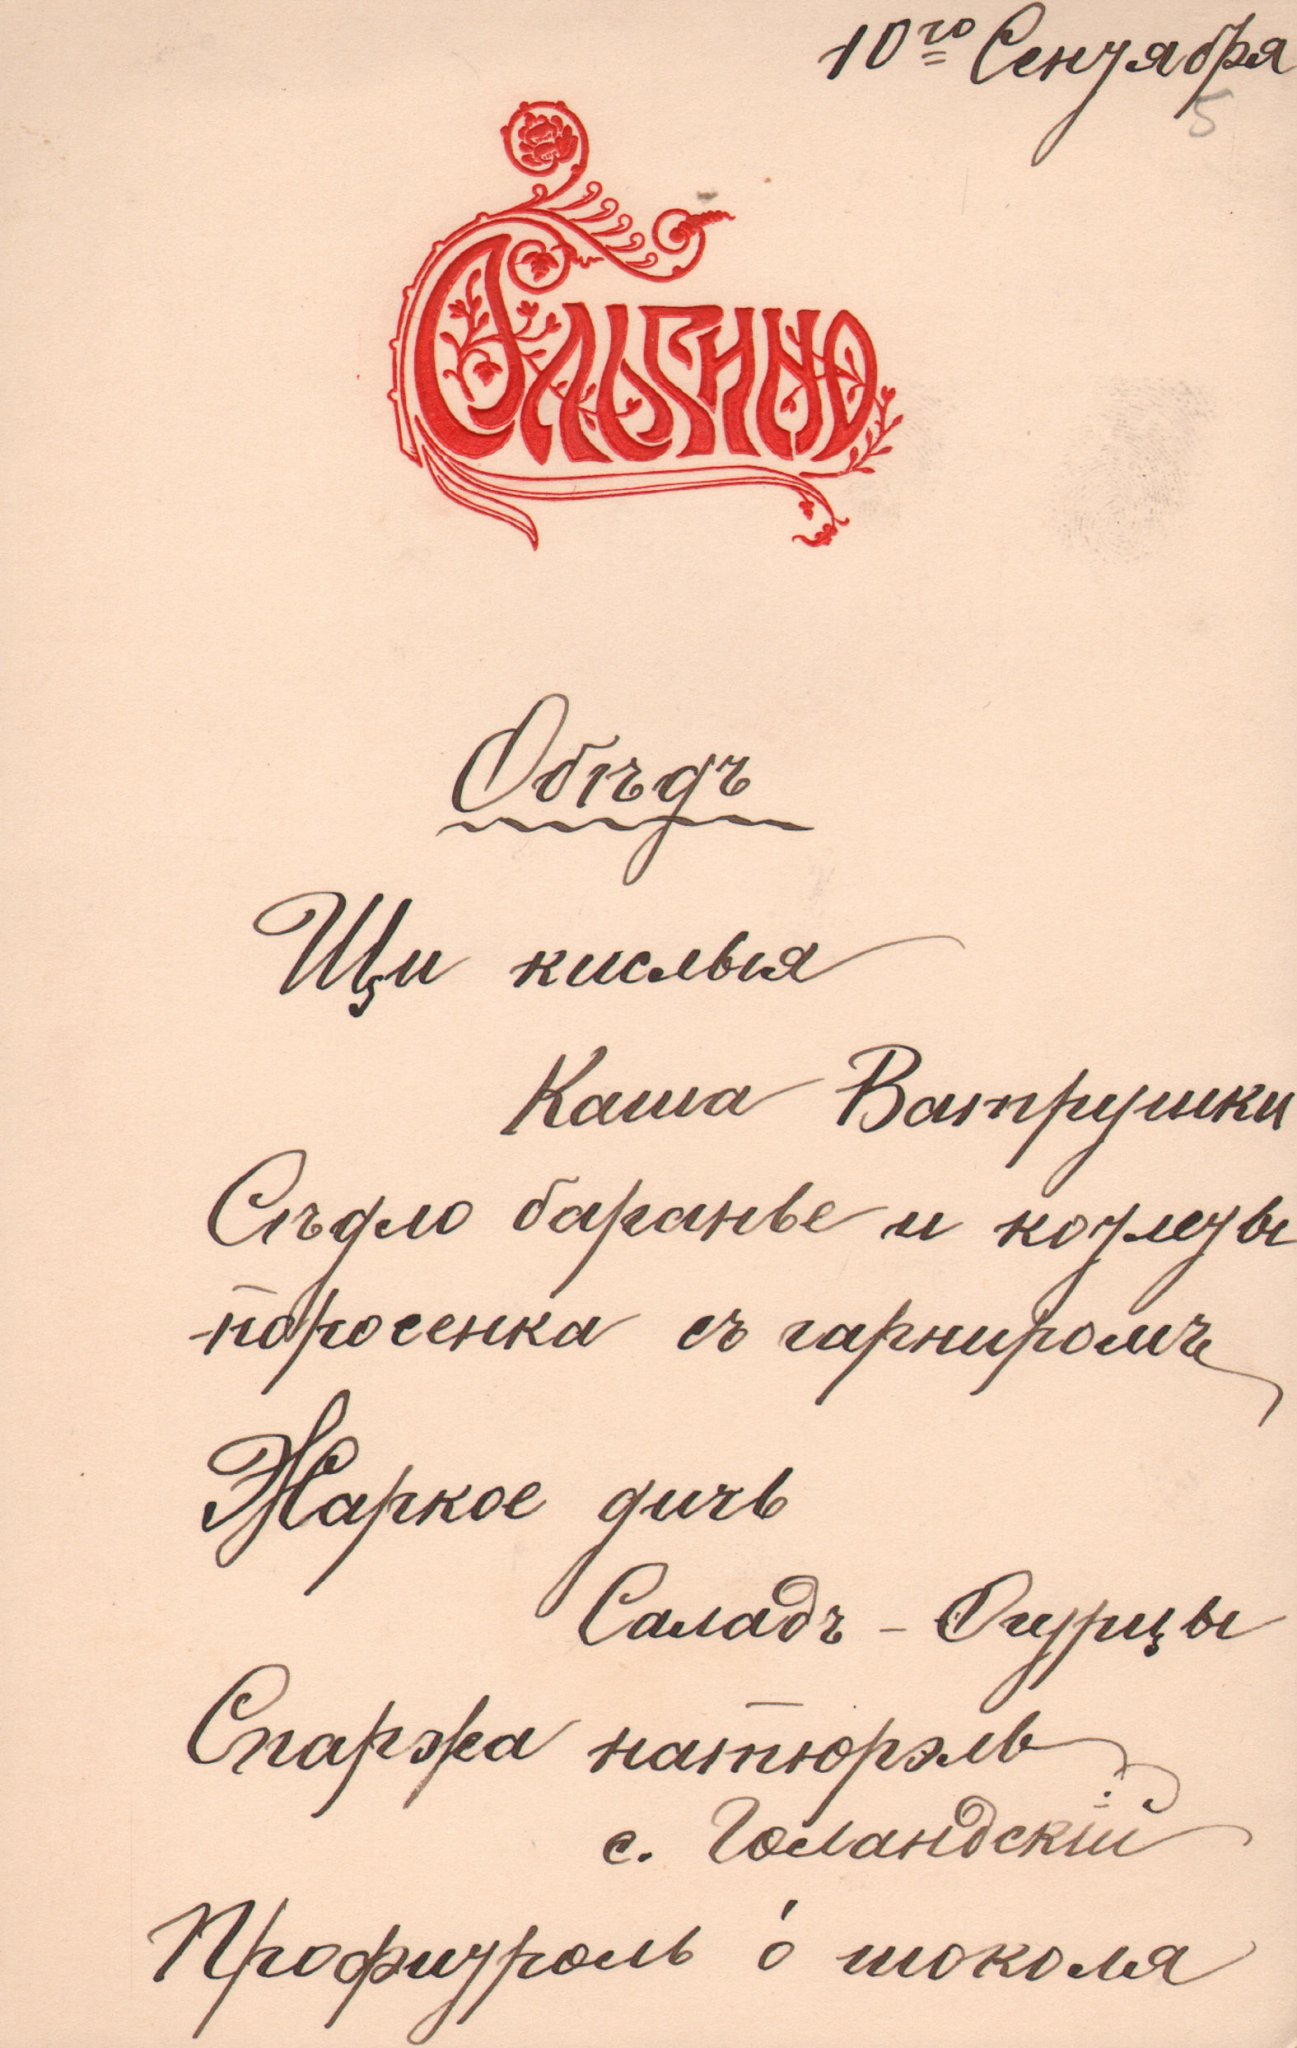 10го Сентября
5
Ольгино
Обѣдъ
Щи кислыя
Каша Ватрушки
Сѣдло баранье и котлеты
поросенка съ гарниромъ
Жаркое дичь
Саладъ - Огурцы
Спаржа натюрэль
с. Голандскій
Профитроль ó шоколя